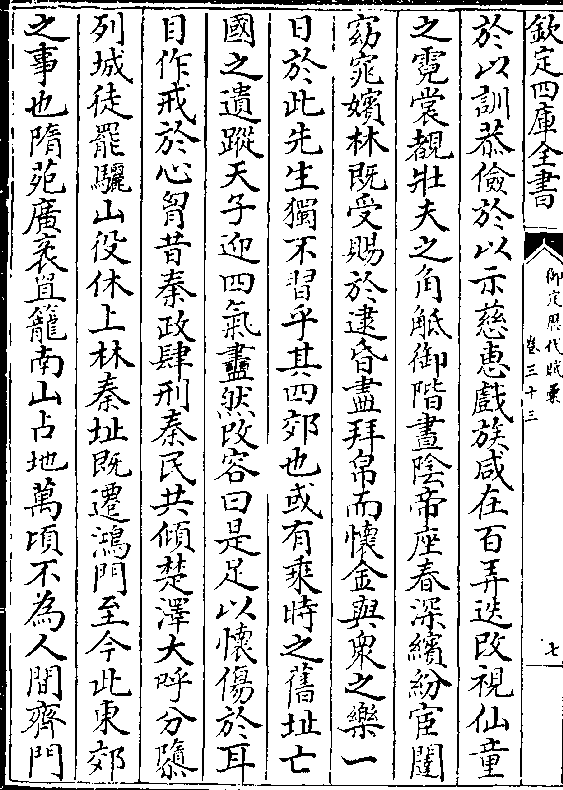 欽定四庫全書
御定歷代賦彙
卷三十三
七
於以訓恭儉於以示慈惠戲族咸在百弄迭改視仙童
之霓裳覩壯夫之角觝御階晝陰帝座春深繽紛宦闥
窈窕嬪林既受賜於逮昏盡拜帛而懷金與衆之樂一
日於此先生獨不習乎其四郊也或有乘時之舊址亡
國之遺蹤天子迎四氣盡然改容曰是足以懷傷於耳
目作戒於心胷昔秦政肆刑秦民共傾楚澤大呼分隳
列城徒罷驪山役休上林秦址既遷鴻門至今此東郊
之事也隋苑廣袤罝籠南山占地萬頃不為人間齊門